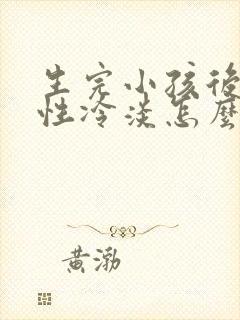 生完小孩後
性冷淡怎麼
黃渤